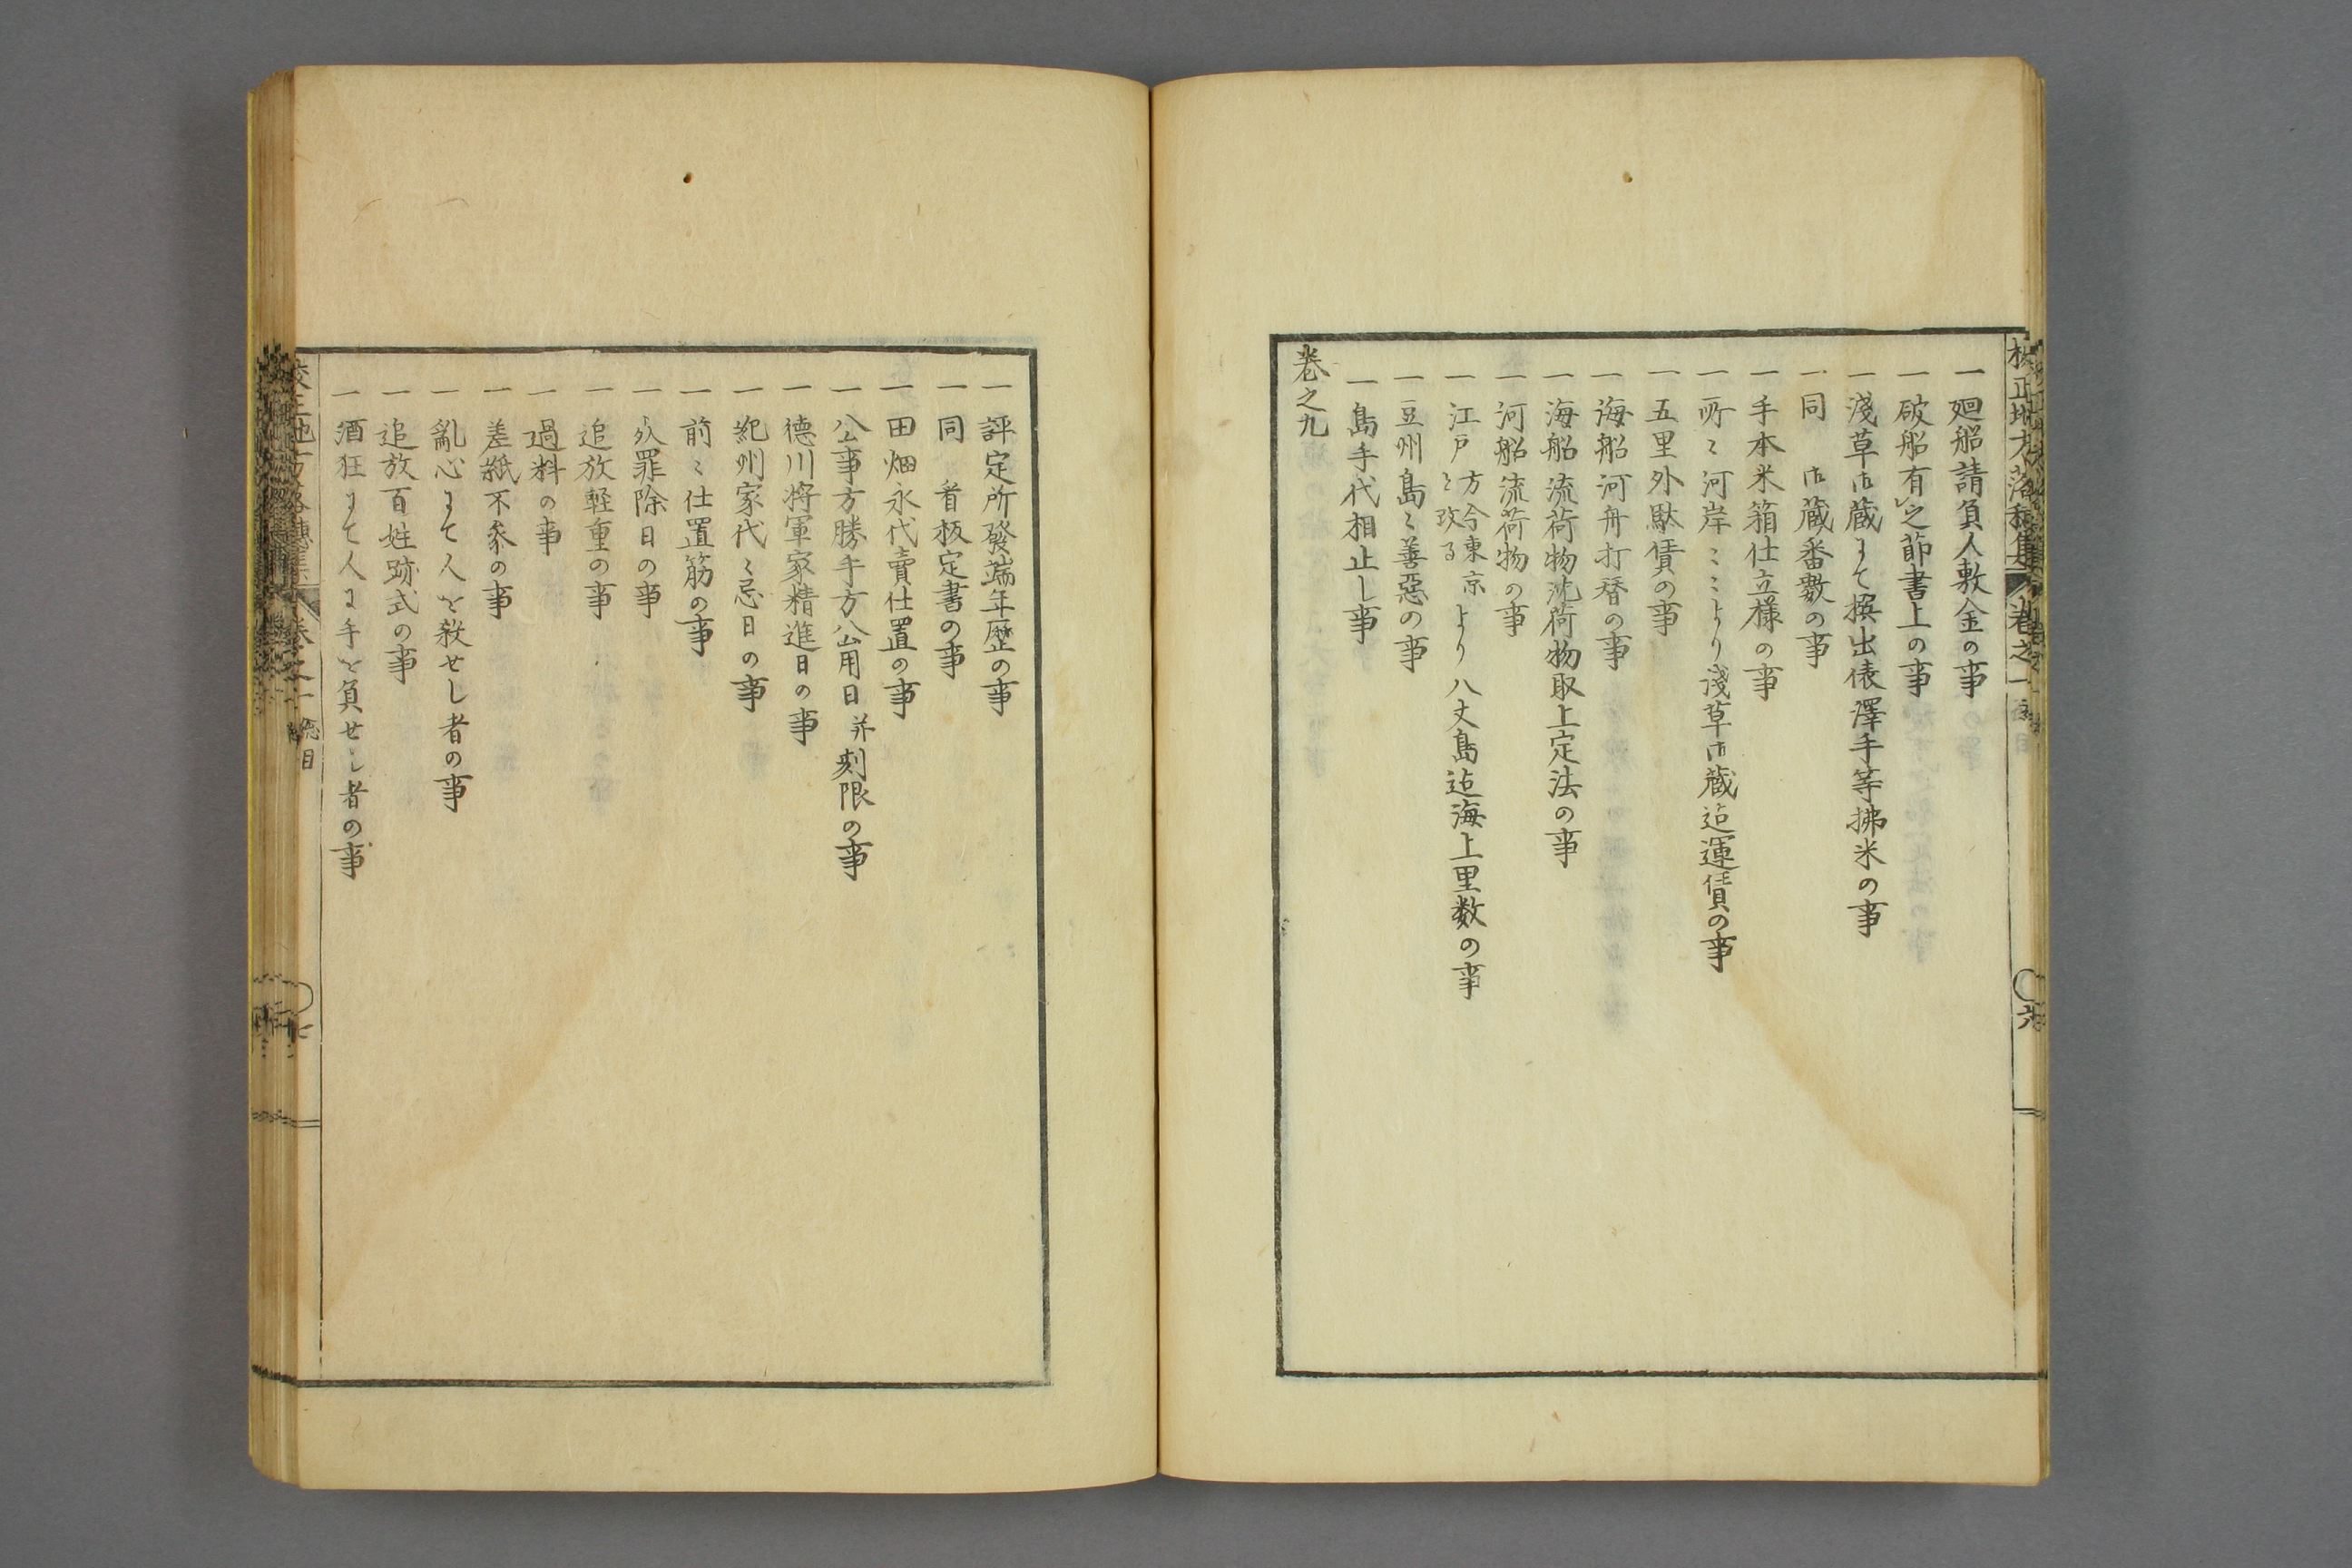 一廻船請負人敷金の事
一破船有之節書上の事
一淺草御蔵にて撰出俵澤手等拂米の事
一同　御蔵番數の事
一手本米箱仕立樣の事
一所〻河岸〻〻より淺草御蔵迠運賃の事
一五里外駄賃の事
一海船河舟打替の事
一海船流荷物沈荷物取上定法の事
一河船流荷物の事
一江戸方今東京と改るより八丈島迠海上里数の事
一豆州島〻善惡の事
一島手代相止し事
卷之九
一評定所發端年歴の事
一同　着板定書の事
一田畑永代賣仕置の事
一公事方勝手方公用日并刻限の事
一德川將軍家精進日の事
一紀州家代〻忌日の事
一前〻仕置筋の事
一死罪除日の事
一追放軽重の事
一過料の事
一差紙不参の事
一亂心にて人を殺せし者の事
一追放百姓跡式の事
一酒狂にて人に手を負せし者の事